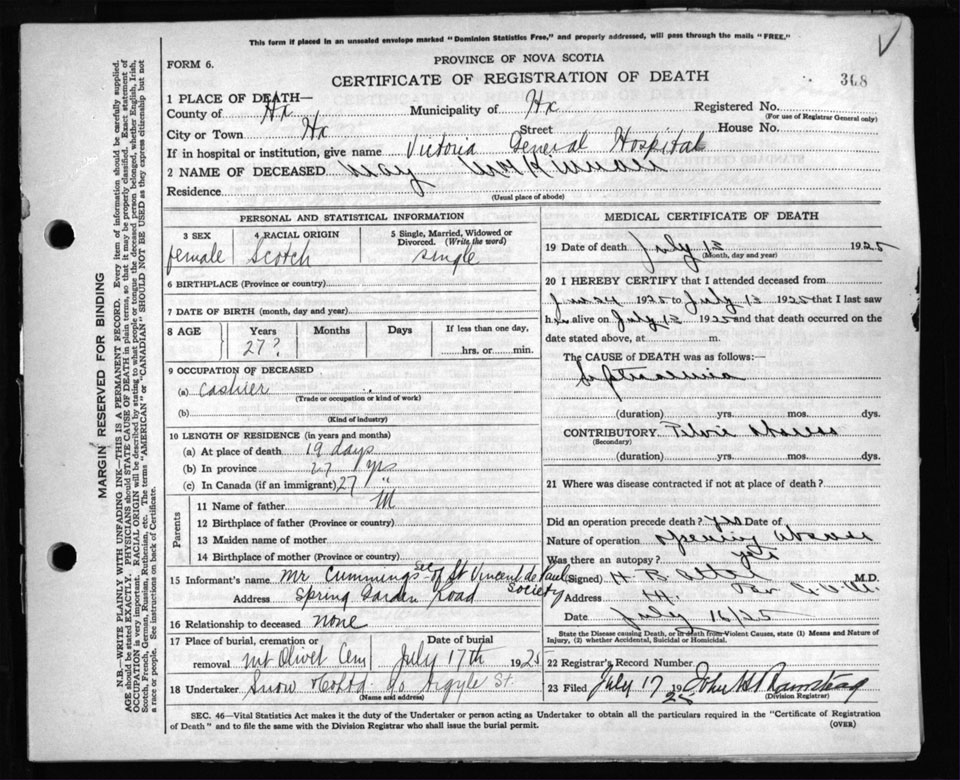 This form if placed in an unsealed envelope marked "Dominion Statistics Free," and properly addressed, will pass through the mails "FREE."
FORM 6.
PROVINCE OF NOVA SCOTIA
CERTIFICATE OF REGISTRATION OF DEATH
368
1 PLACE OF DEATH—
County of Hx Municipality of Hx Registered No.
(For use of Registrar General only)
City or Town Hx Street House No.
If in hospital or institution, give name Victoria General Hospital
2 NAME OF DECEASED May
Residence
(Usual place of abode)
PERSONAL AND STATISTICAL INFORMATION
3 SEX 4 RACIAL ORIGIN 5 Single, Married, Widowed or Divorced. (Write the word)
female Scotch single
6 BIRTHPLACE (Province or country)
7 DATE OF BIRTH (month, day and year)
8 AGE Years Months Days If less than one day,
27? hrs. or min.
9 OCCUPATION OF DECEASED
(a) cashier
(Trade or occupation or kind of work)
(b)
(Kind of industry)
10 LENGTH OF RESIDENCE (in years and months)
(a) At place of death 19 days
(b) In province 27 yrs
(c) In Canada (if an immigrant) 27 "
Parents
11 Name of father M
12 Birthplace of father (Province or country)
13 Maiden name of mother
14 Birthplace of mother (Province or country)
15 Informant's name Mr Cummings Sec of St Vincent de Paul Society
Address Spring Garden Road
16 Relationship to deceased none
17 Place of burial, cremation or Date of burial
removal Mt Olivet Cem July 17th 1925
18 Undertaker Snow & Co Ltd 90 Argyle St.
(Name and address)
MEDICAL CERTIFICATE OF DEATH
19 Date of death July 13 1925
(Month, day and year)
20 I HEREBY CERTIFY that I attended deceased from
June 24 1925 to July 13 1925 that I last saw
her alive on July 13 1925 and that death occurred on the
date stated above, at m.
The CAUSE of DEATH was as follows:—
Septicaemia
(duration) yrs. mos. dys.
CONTRIBUTORY Pelvic Abscess
(Secondary)
(duration) yrs. mos. dys.
21 Where was disease contracted if not at place of death?
Did an operation precede death? Yes Date of
Nature of operation opening abscess
Was there an autopsy? yes
(Signed) H. B. M.D.
Address
Date July 16/25
State the Disease causing Death, or in death from Violent Causes, state (1) Means and Nature of
Injury, (2) whether Accidental, Suicidal or Homicidal.
22 Registrar's Record Number
23 Filed July 17 1925 John
(Division Registrar)
SEC. 46—Vital Statistics Act makes it the duty of the Undertaker or person acting as Undertaker to obtain all the particulars required in the "Certificate of Registration
of Death" and to file the same with the Division Registrar who shall issue the burial permit. (OVER)
MARGIN RESERVED FOR BINDING
N.B.—WRITE PLAINLY WITH UNFADING INK—THIS IS A PERMANENT RECORD. Every item of information should be carefully supplied.
AGE should be stated EXACTLY. PHYSICIANS should STATE CAUSE OF DEATH in plain terms, so that it may be properly classified. Exact statement of
OCCUPATION is very important. RACIAL ORIGIN will be described by stating to what people or tongue the deceased person belonged, whether English, Irish,
Scotch, French, German, Russian, Ruthenian, etc. The terms "AMERICAN" or "CANADIAN" SHOULD NOT BE USED as they express citizenship but not
a race or people. See instructions on back of Certificate.